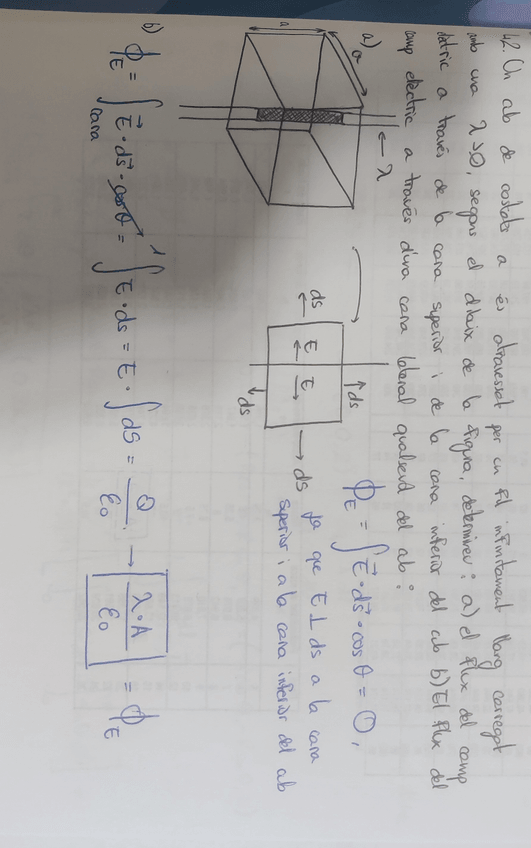 42. Un cub de costats a és atravessat per un fil infinitament llarg carregat
amb una λ>0, segons el dibuix de la figura, determineu: a) el flux del camp
elèctric a través de la cara superior i de la cara inferior del cub b) El flux del
camp elèctric a través d'una cara lateral qualsevol del cub:
a)
a
a
λ
ds
ds
E
E
ds
ds
ϕE = ∫ E⃗ · ds⃗ · cos θ = 0,
ja que E ⊥ ds a la cara
superior i a la cara inferior del cub
b) ϕE = ∫cara E⃗ · ds⃗ · cos θ 1 = ∫ E · ds = E · ∫ dS = Q/ε0 → λ·A/ε0 = ϕE